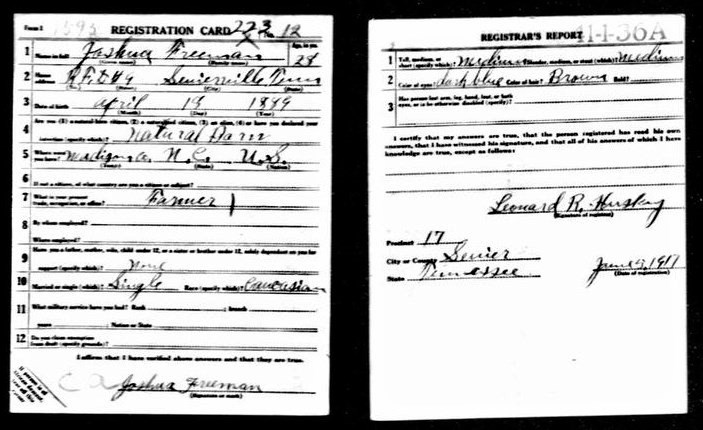 Form 1 1595 REGISTRATION CARD 223 No. 12
1 Name in full Joshua Freeman Age, in yrs. 28
(Given name) (Family name)
2 Home address R.F.D. #9 Sevierville Tenn
(No.) (Street) (City) (State)
3 Date of birth April 13 1889
(Month) (Day) (Year)
4 Are you (1) a natural-born citizen, (2) a naturalized citizen, (3) an alien, (4) or have you declared your
intention (specify which)? Natural Born
5 Where were you born? Madison Co. N.C. U.S.
(Town) (State) (Nation)
6 If not a citizen, of what country are you a citizen or subject?
7 What is your present trade, occupation, or office? Farmer
8 By whom employed?
Where employed?
9 Have you a father, mother, wife, child under 12, or a sister or brother under 12, solely dependent on you for
support (specify which)? None
10 Married or single (which)? Single Race (specify which)? Caucasian
11 What military service have you had? Rank ; branch
years ; Nation or State
12 Do you claim exemption from draft (specify grounds)?
I affirm that I have verified above answers and that they are true.
Joshua Freeman
(Signature or mark)
If person is of African descent,
REGISTRAR'S REPORT 41-1-36A
1 Tall, medium, or short (specify which)? Medium Slender, medium, or stout (which)? Medium
2 Color of eyes? dark blue Color of hair? Brown Bald?
3 Has person lost arm, leg, hand, foot, or both eyes, or is he otherwise disabled (specify)?
I certify that my answers are true, that the person registered has read his own
answers, that I have witnessed his signature, and that all of his answers of which I have
knowledge are true, except as follows:
Leonard R. Huskey
(Signature of registrar)
Precinct 17
City or County Sevier
State Tennessee June 5, 1917
(Date of registration)